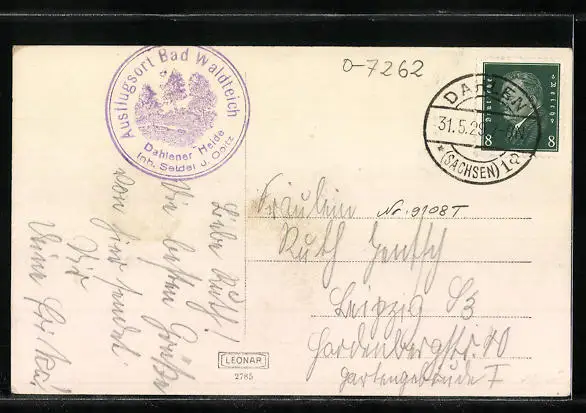 Ausflugsort Bad Waldteich
Dahlener Heide
Inh. Seidel J. Opitz
0-7262
DAHLEN
31.5.29
* (SACHSEN)
8 8
Liebe Ruth!
Die besten Grüße
von hier sendet
Dir
Deine
Fräulein Nr. 9108T
Ruth Jentsch
Leipzig S3
Hardenbergstr. 40
Gartengebäude I
LEONAR
2785